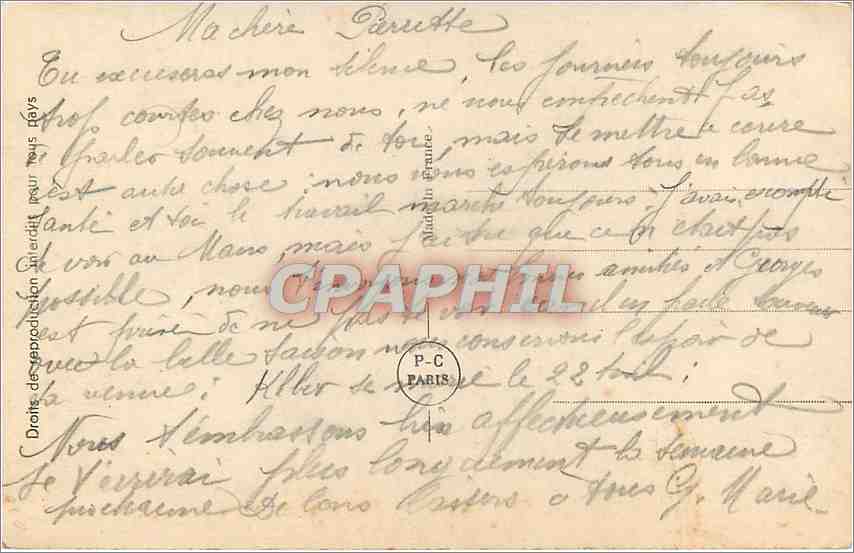 Ma chère Pierrette
Tu excuseras mon silence, les journées toujours
trop courtes chez nous, ne nous empêchent pas
de parler souvent de toi, mais se mettre à écrire
c'est autre chose; nous nous espérons tous en bonne
santé et toi le travail marche toujours. J'avais compté
te voir au Mans, mais j'ai vu que ce n'était pas
possible, nous t'envoyons nos amitiés et Georges
est privé de ne pas te voir il en parle souvent
avec la belle saison nous conservons l'espoir de
ta venue; se marie le 22
Nous t'embrassons bien affectueusement
Je t'écrirai plus longuement la semaine
prochaine De bons baisers à tous G. Marie
Droits de reproduction interdits pour tous pays
Made in France
P-C
PARIS
CPAPHIL